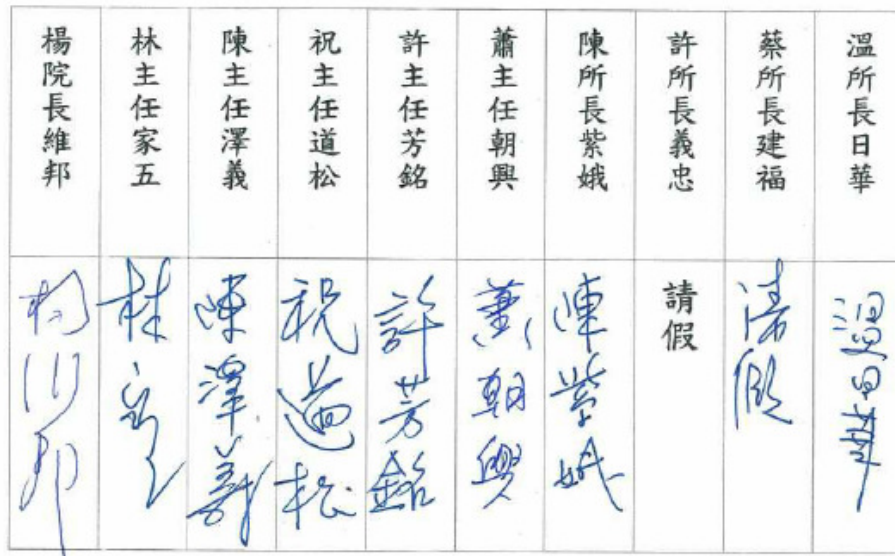 溫所長日華
蔡所長建福
許所長義忠
陳所長紫娥
蕭主任朝興
許主任芳銘
祝主任道松
陳主任澤義
林主任家五
楊院長維邦
溫日華
請假
請假
陳紫娥
蕭朝興
許芳銘
祝道松
陳澤義
林家五
楊維邦